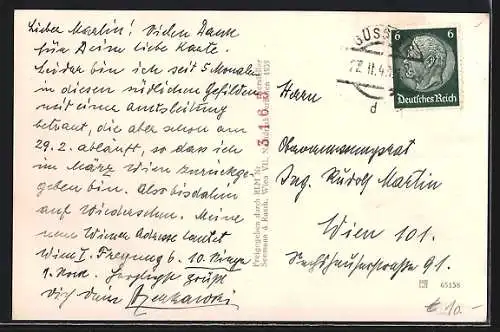 Lieber Martin! Vielen Dank
für Deine liebe Karte.
Leider bin ich seit 5 Monaten
in diesen südlichen Gefilden
mit einer Amtsleitung
betraut, die aber schon am
29.2. abläuft, so dass ich
im März Wien zurückge-
geben bin. Also bis dahin
auf Wiedersehen. Meine
neue Wiener Adresse lautet
Wien I. Freyung 6. 10. Stiege
1. Stock. Herzlichst grüßt
Dich Dein
Freigegeben durch RLM Nr.
3165
GÜSS
22. II. 4
d
6 6
Deutsches Reich
Herrn
Obervermessungsrat
Ing. Rudolf Martin
Wien 101.
Sechshauserstraße 91.
65158
€ 10.-